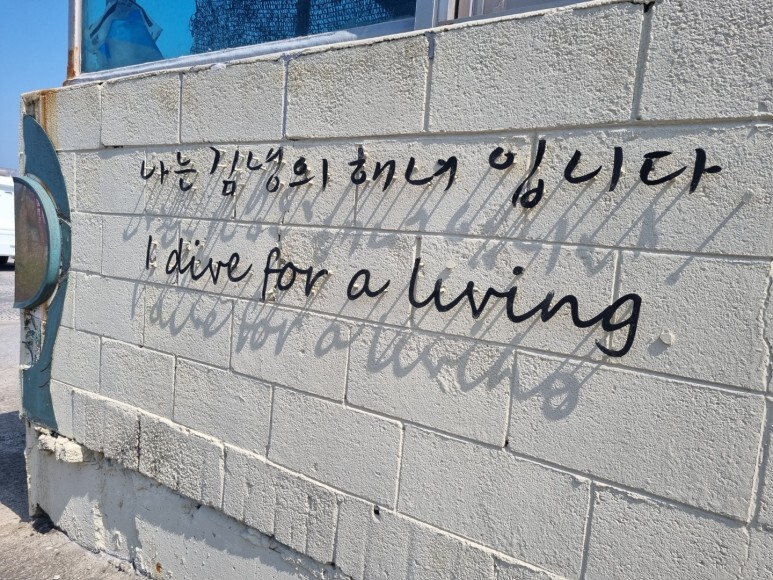 나는 김녕의 해녀 입니다
I dive for a living